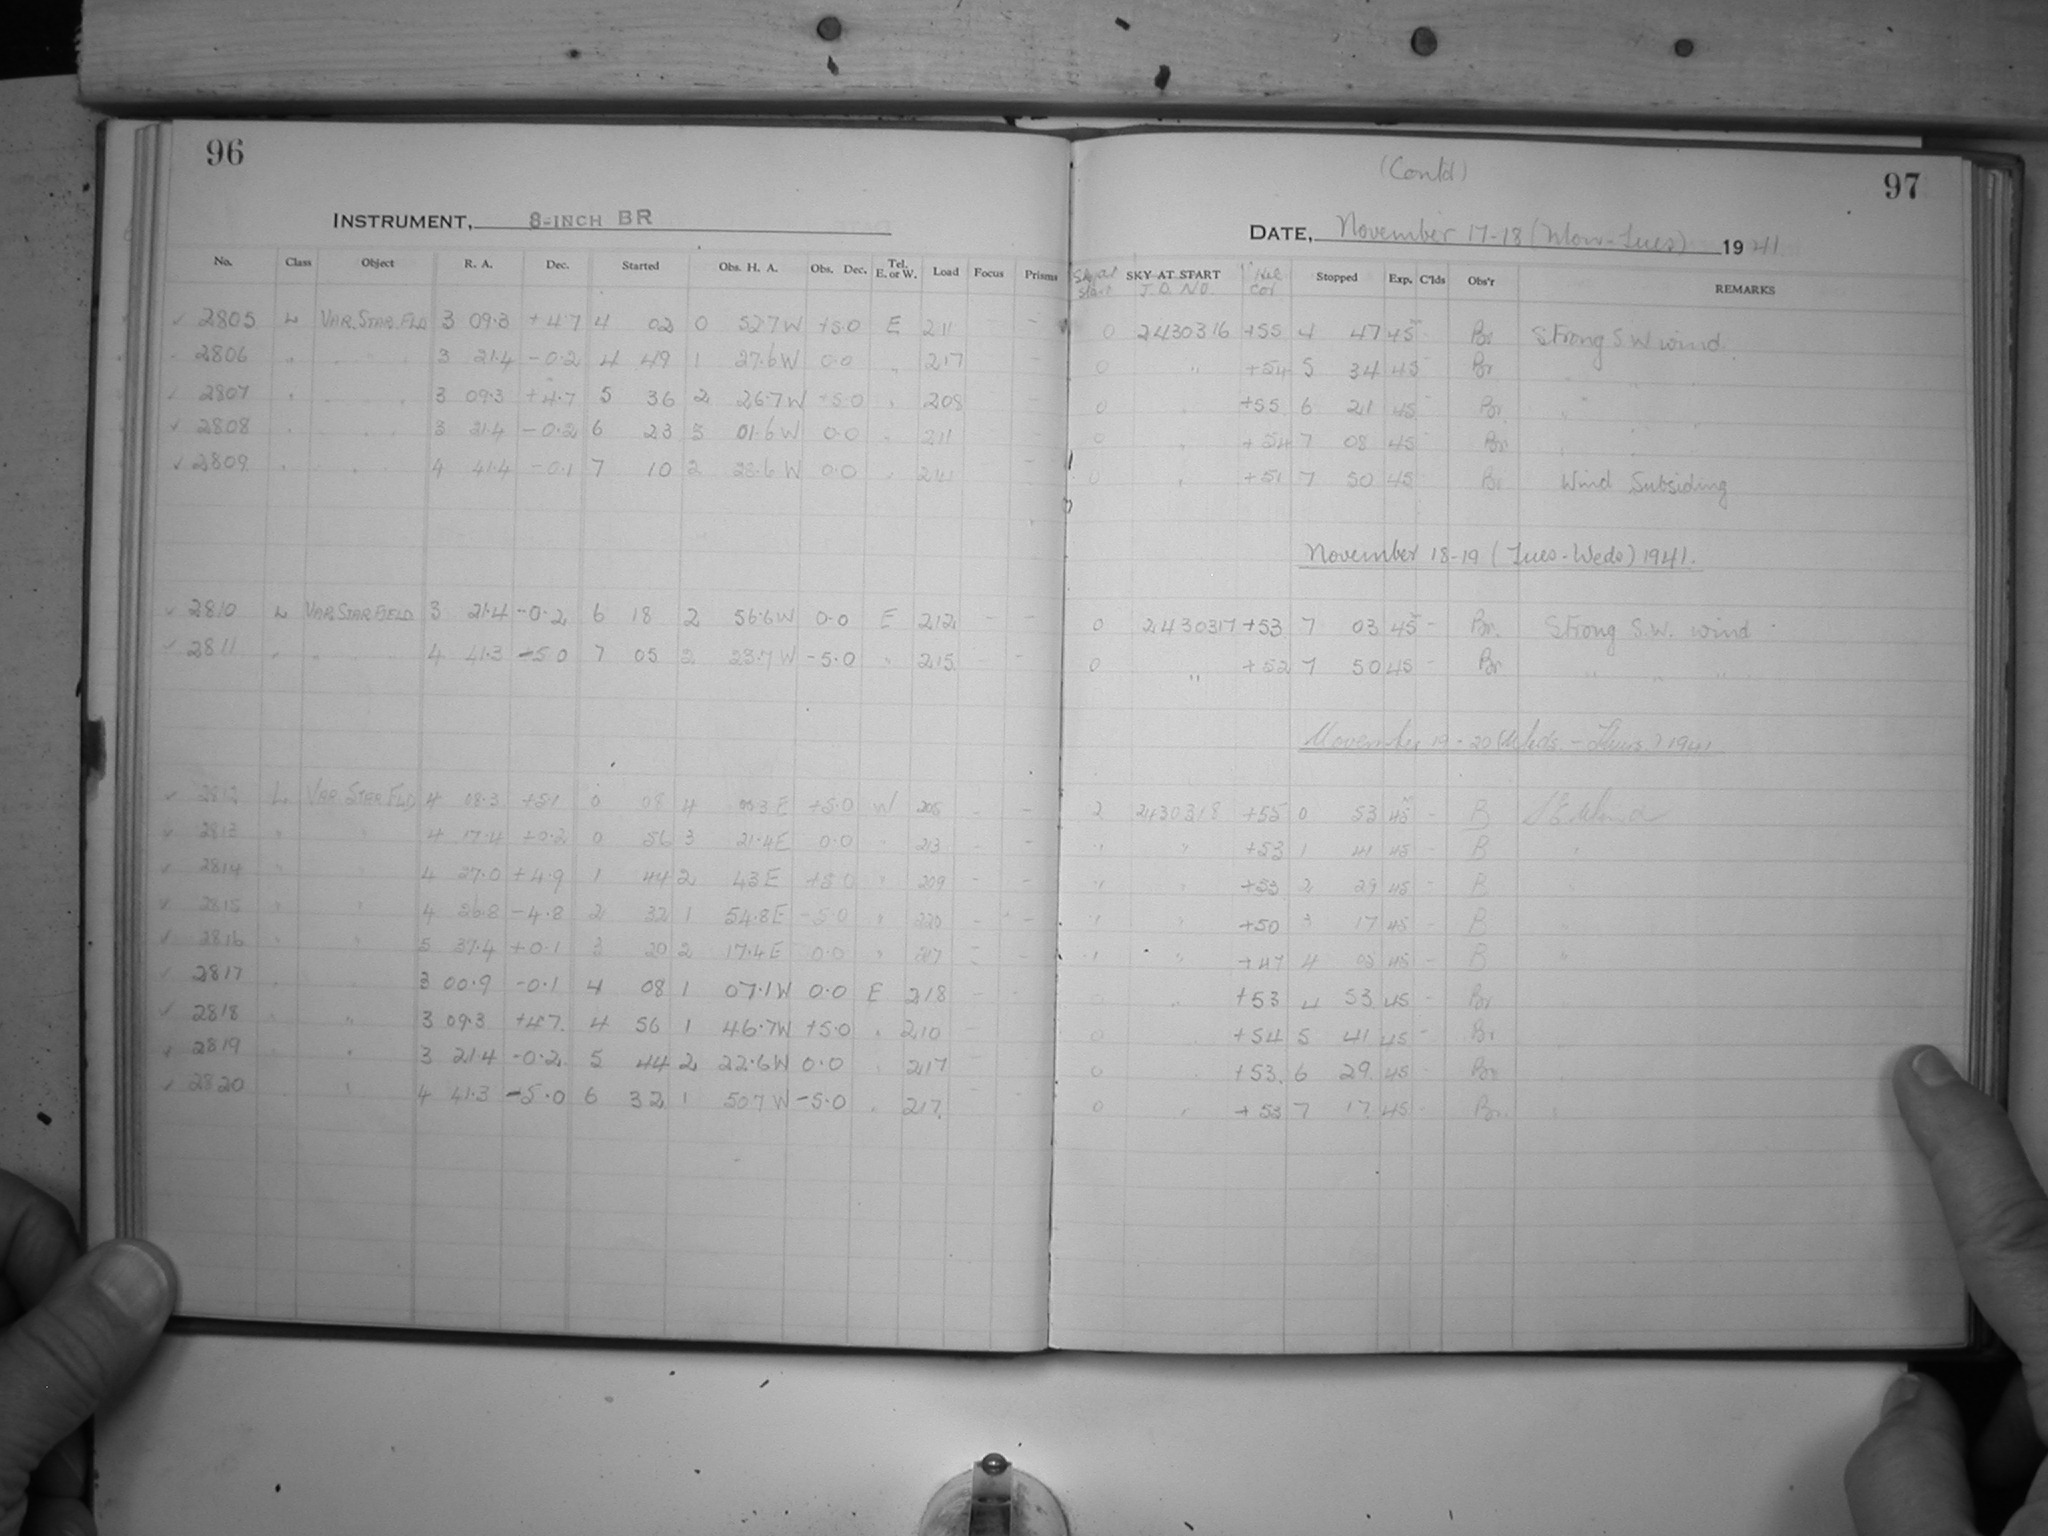 96
INSTRUMENT, 8-INCH BR
No. Class Object R. A. Dec. Started Obs. H. A. Obs. Dec. Tel. E. or W. Load Focus Prisms
2805 L VAR. STAR. FLD 3 09.3 +4.7 4 02 0 52.7 W +5.0 E 211 -
2806 " " " 3 21.4 -0.2 4 49 1 37.6 W 0.0 " 217 -
2807 " " " 3 09.3 +4.7 5 36 2 26.7 W +5.0 " 208 -
2808 " " " 3 21.4 -0.2 6 23 3 01.6 W 0.0 " 211 -
2809 " " 4 41.4 -0.1 7 10 2 28.6 W 0.0 " 211 -
2810 L VAR. STAR FIELD 3 21.4 -0.2 6 18 2 56.6 W 0.0 E 212 - -
2811 " " " 4 41.3 -5.0 7 05 2 23.7 W -5.0 " 215 - -
2812 L VAR. STAR FLD 4 08.3 +5.1 0 08 4 E +5.0 W 205 - -
2813 " " 4 17.4 +0.2 0 56 3 21.4 E 0.0 " 213 - -
2814 " " 4 27.0 +4.9 1 44 2 43 E +5.0 " 209 - -
2815 " " 4 26.8 -4.8 2 32 1 54.8 E -5.0 " 220 - -
2816 " " 5 37.4 +0.1 3 20 2 17.4 E 0.0 " 217 - -
2817 " " 3 00.9 -0.1 4 08 1 07.1 W 0.0 E 218 - -
2818 " " 3 09.3 +4.7 4 56 1 46.7 W +5.0 " 210 -
2819 " 3 21.4 -0.2 5 44 2 22.6 W 0.0 " 217 -
2820 " 4 41.3 -5.0 6 32 1 507 W -5.0 " 217.
(Contd)
97
DATE, November 17-18 (Mon-Tues) 1941
Sky at start SKY AT START J.D. NO. Hel Cor Stopped Exp. C'lds Obs'r REMARKS
0 2430316 +55 4 47 45 - Br Strong S.W wind.
0 " +54 5 34 45 - Br " " "
0 " +55 6 21 45 - Br " " "
0 " +54 7 08 45 - Br " " "
0 " +51 7 50 45 Br Wind Subsiding
November 18-19 (Tues-Weds) 1941.
0 2430317 +53 7 03 45 - Br. Strong S.W. wind
0 " +52 7 50 45 - Br " " "
November 19-20 (Weds.-Thurs.) 1941
2 2430318 +55 0 53 45 - B
" " +53 1 41 45 - B "
" " +53 2 29 45 - B "
" " +50 3 17 45 - B "
" " +47 4 05 45 - B "
" +53 4 53 45 - Br
0 +54 5 41 45 - Br
0 " +53. 6 29. 45 - Br
0 " +53 7 17 45 - Br.